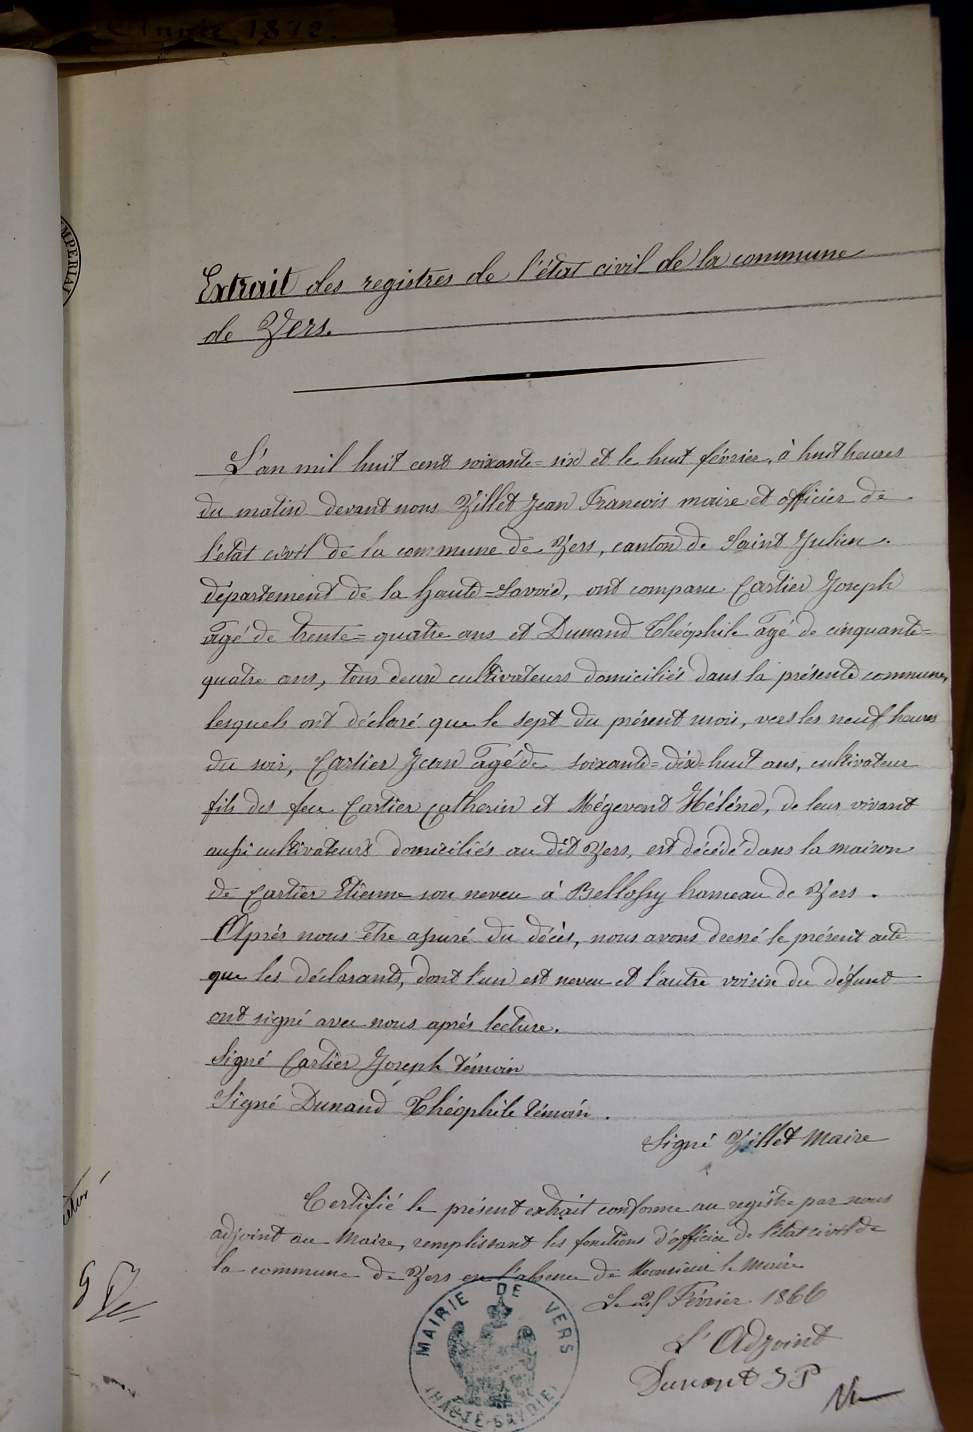 Année 1872.
IMPERIAL
Extrait des registres de l'état civil de la commune
de Vers.
L'an mil huit cent soixante=six et le huit février, à huit heures
du matin devant nous Villet Jean François maire et officier de
l'état civil de la commune de Vers, canton de Saint Julien.
département de la haute=Savoie, ont comparu Cartier Joseph
âgé de trente=quatre ans et Dunand Théophile âgé de cinquante=
quatre ans, tous deux cultivateurs domiciliés dans la présente commune,
lesquels ont déclaré que le sept du présent mois, vers les neuf heures
du soir, Cartier Jean âgé de soixante=dix=huit ans, cultivateur
fils des feu Cartier Catherin et Mégevont Héléne, de leur vivant
aussi cultivateurs domiciliés au dit Vers, est décédé dans la maison
de Cartier Etienne son neveu à Bellossy hameau de Vers.
Après nous être assuré du décès, nous avons dressé le présent acte
que les déclarants, dont l'un est neveu et l'autre voisin du défunt
ont signé avec nous aprés lecture.
Signé Cartier Joseph témoin
Signé Dunand Théophile témoin.
Signé Villet Maire
Certifié le présent extrait conforme au registre par nous
adjoint au Maire, remplissant les fonctions d'officier de l'état civil de
la commune de Vers en l'absence de Monsieur le Maire
Le Février 1866
L'Adjoint
Dunant J P
MAIRIE DE VERS
(HAUTE-SAVOIE)